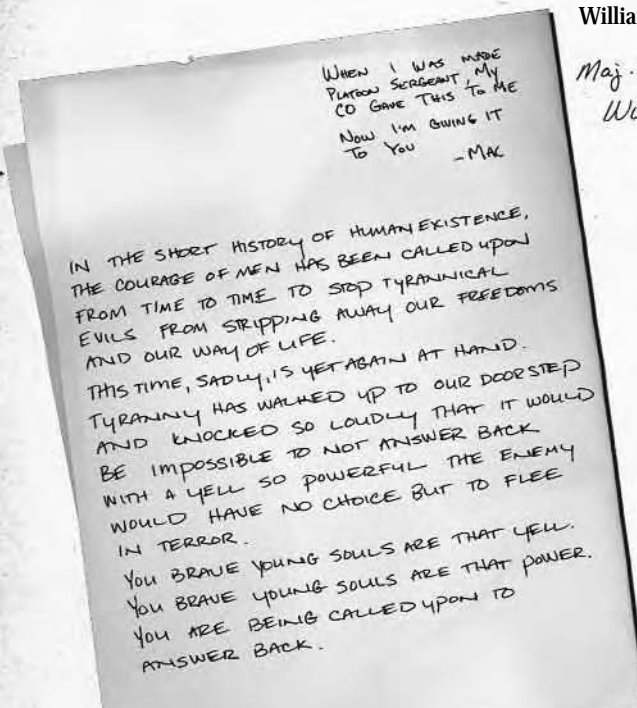 Willia
Maj.
Wo
WHEN I WAS MADE
PLATOON SERGEANT, MY
CO GAVE THIS TO ME
NOW I'M GIVING IT
TO YOU
-MAC
IN THE SHORT HISTORY OF HUMAN EXISTENCE,
THE COURAGE OF MEN HAS BEEN CALLED UPON
FROM TIME TO TIME TO STOP TYRANNICAL
EVILS FROM STRIPPING AWAY OUR FREEDOMS
AND OUR WAY OF LIFE.
THIS TIME, SADLY, IS YET AGAIN AT HAND.
TYRANNY HAS WALKED UP TO OUR DOORSTEP
AND KNOCKED SO LOUDLY THAT IT WOULD
BE IMPOSSIBLE TO NOT ANSWER BACK
WITH A YELL SO POWERFUL THE ENEMY
WOULD HAVE NO CHOICE BUT TO FLEE
IN TERROR.
YOU BRAVE YOUNG SOULS ARE THAT YELL.
YOU BRAVE YOUNG SOULS ARE THAT POWER.
YOU ARE BEING CALLED UPON TO
ANSWER BACK.